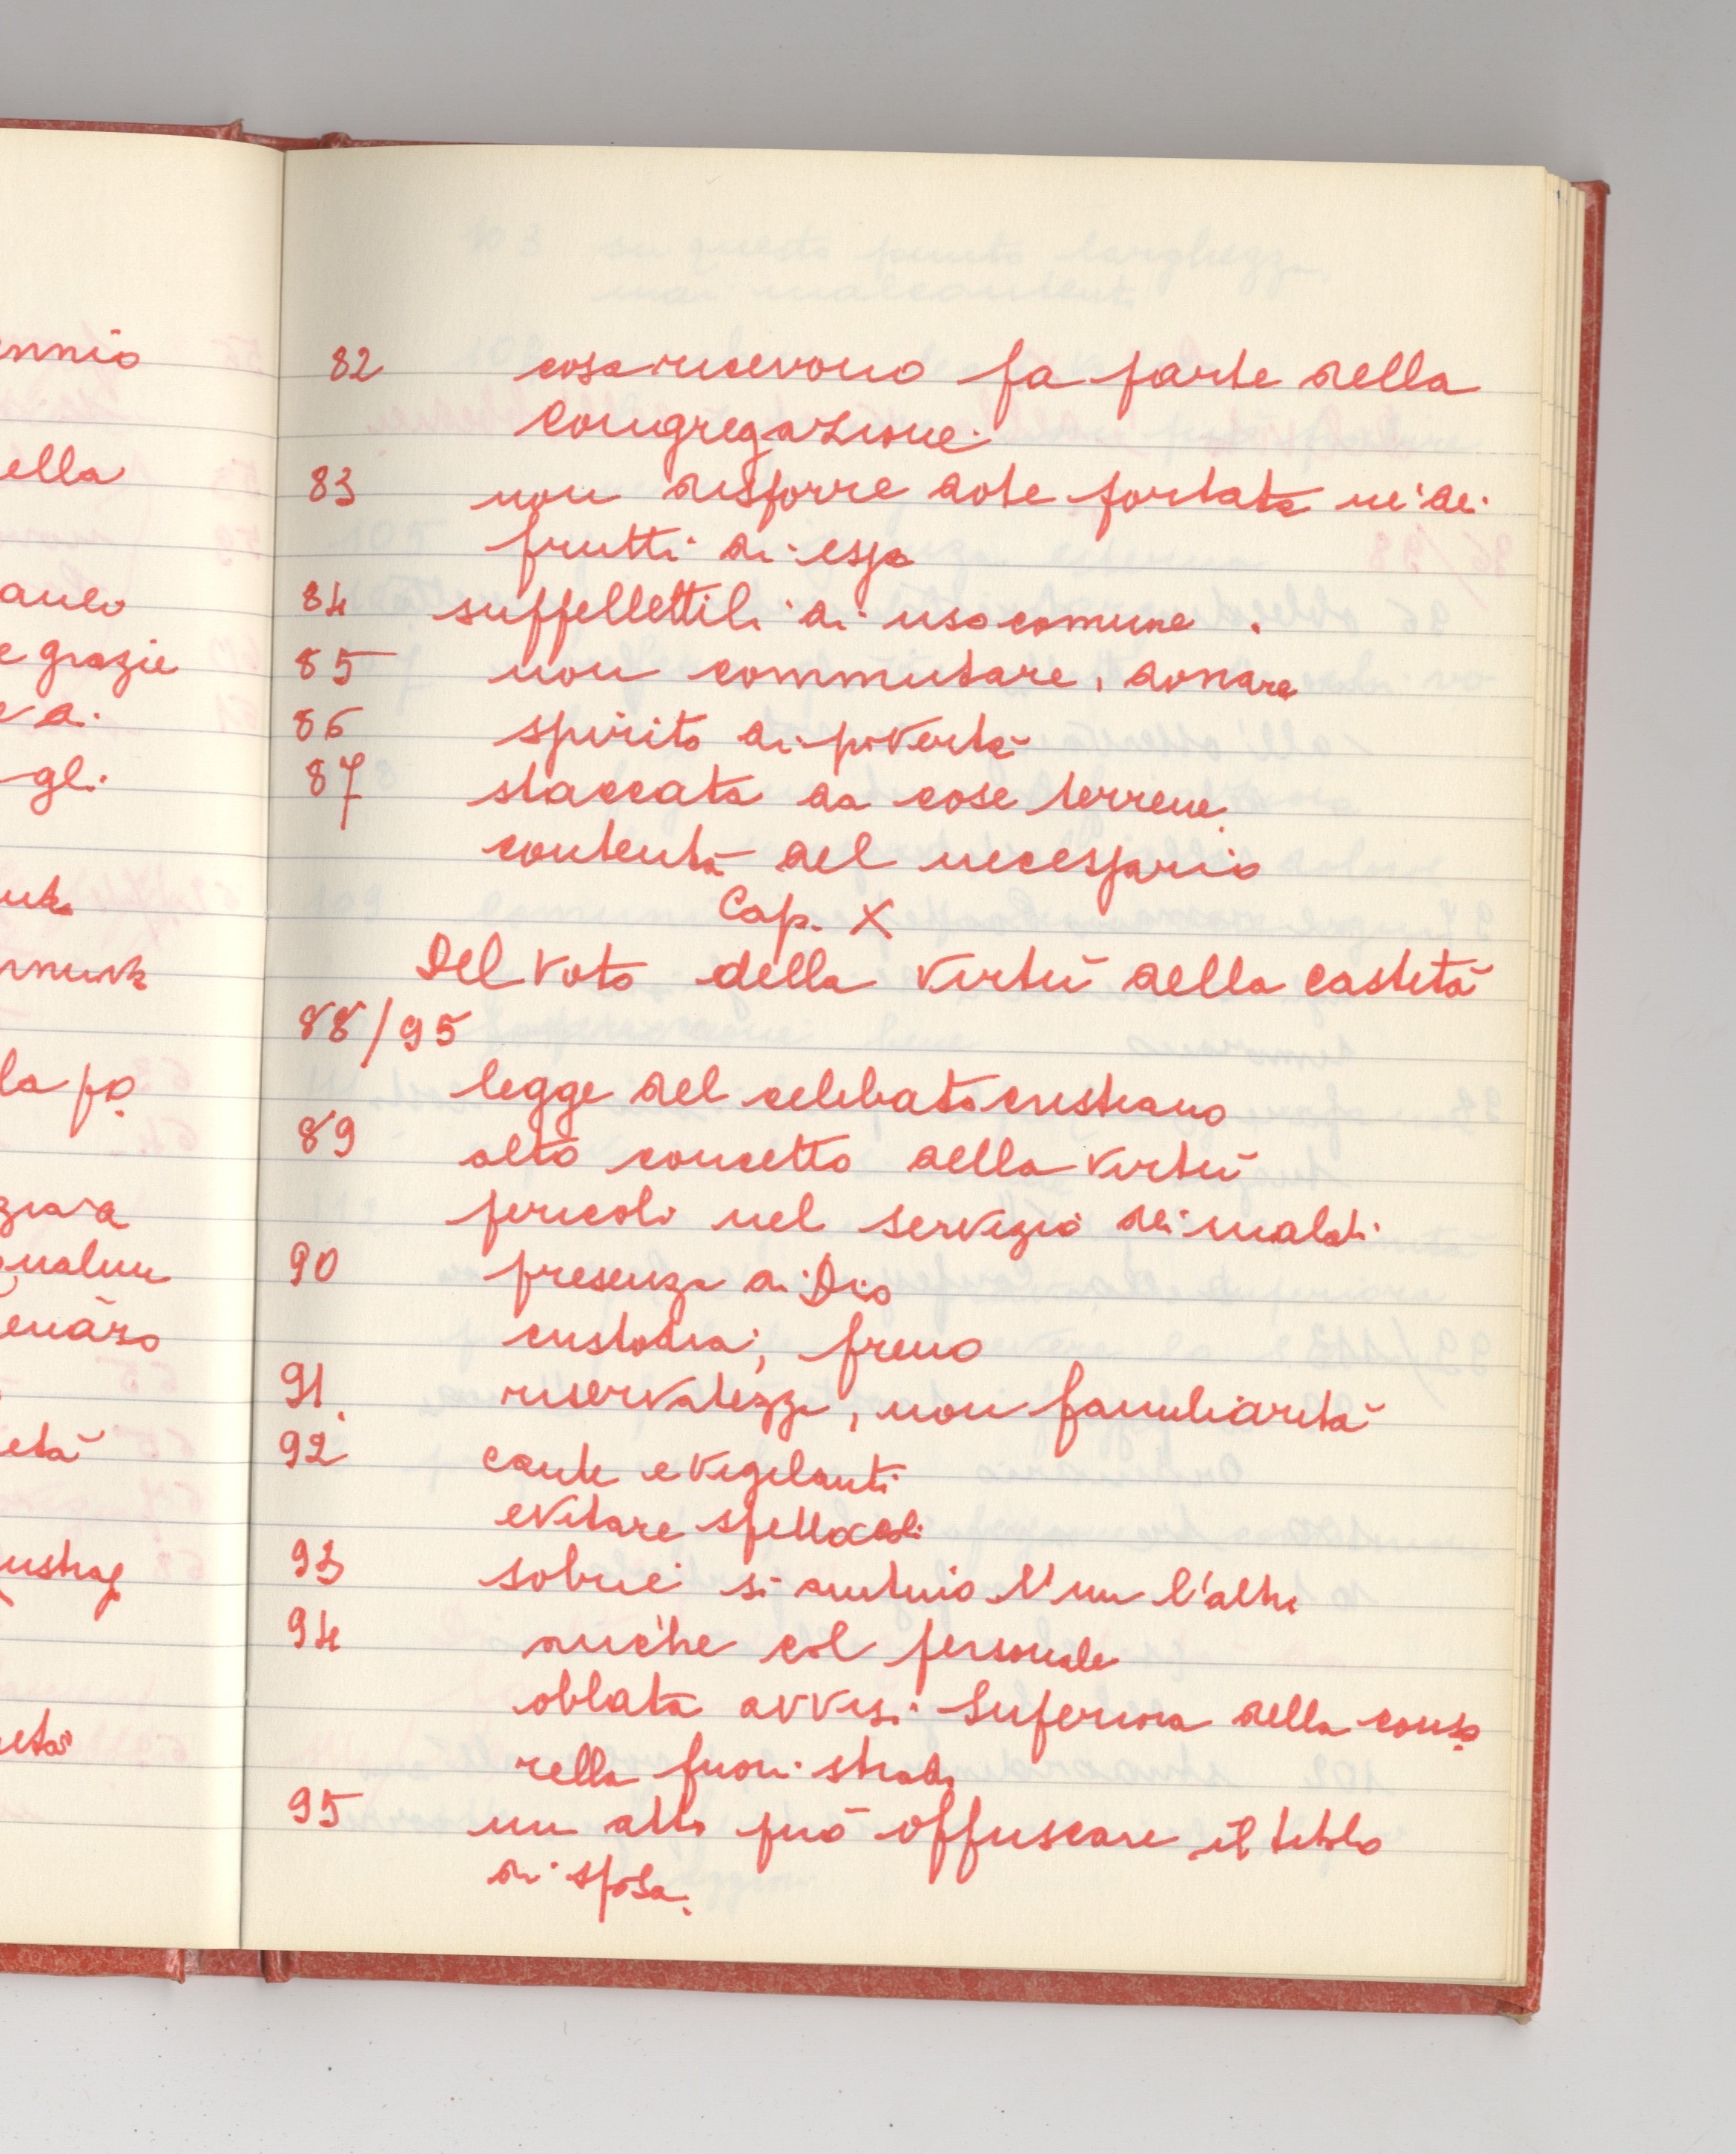 ennio
ella
e grazie
e di
gli
la po
82 cosa ricevono fa parte della
Congregazione.
83 non disporre dote portata ne' dei
frutti di essa
84 suppellettili di uso comune.
85 non commutare, donare
86 spirito di povertà
87 staccata da cose terrene
contenta del necessario
Cap. X
Del voto della virtù della castità
88/95
legge del celibato cristiano
89 alto concetto della virtù
pericoli nel servizio dei malati
90 presenza di Dio
custodia; freno
91. riservatezza, non familiarità
92 caute e vigilanti
evitare spettacoli
93 sobrie si aiutino l'un l'altra
94 anche col personale
oblata avvisi Superiora della conso
rella fuori strada
95 un atto può offuscare il titolo
di sposa.